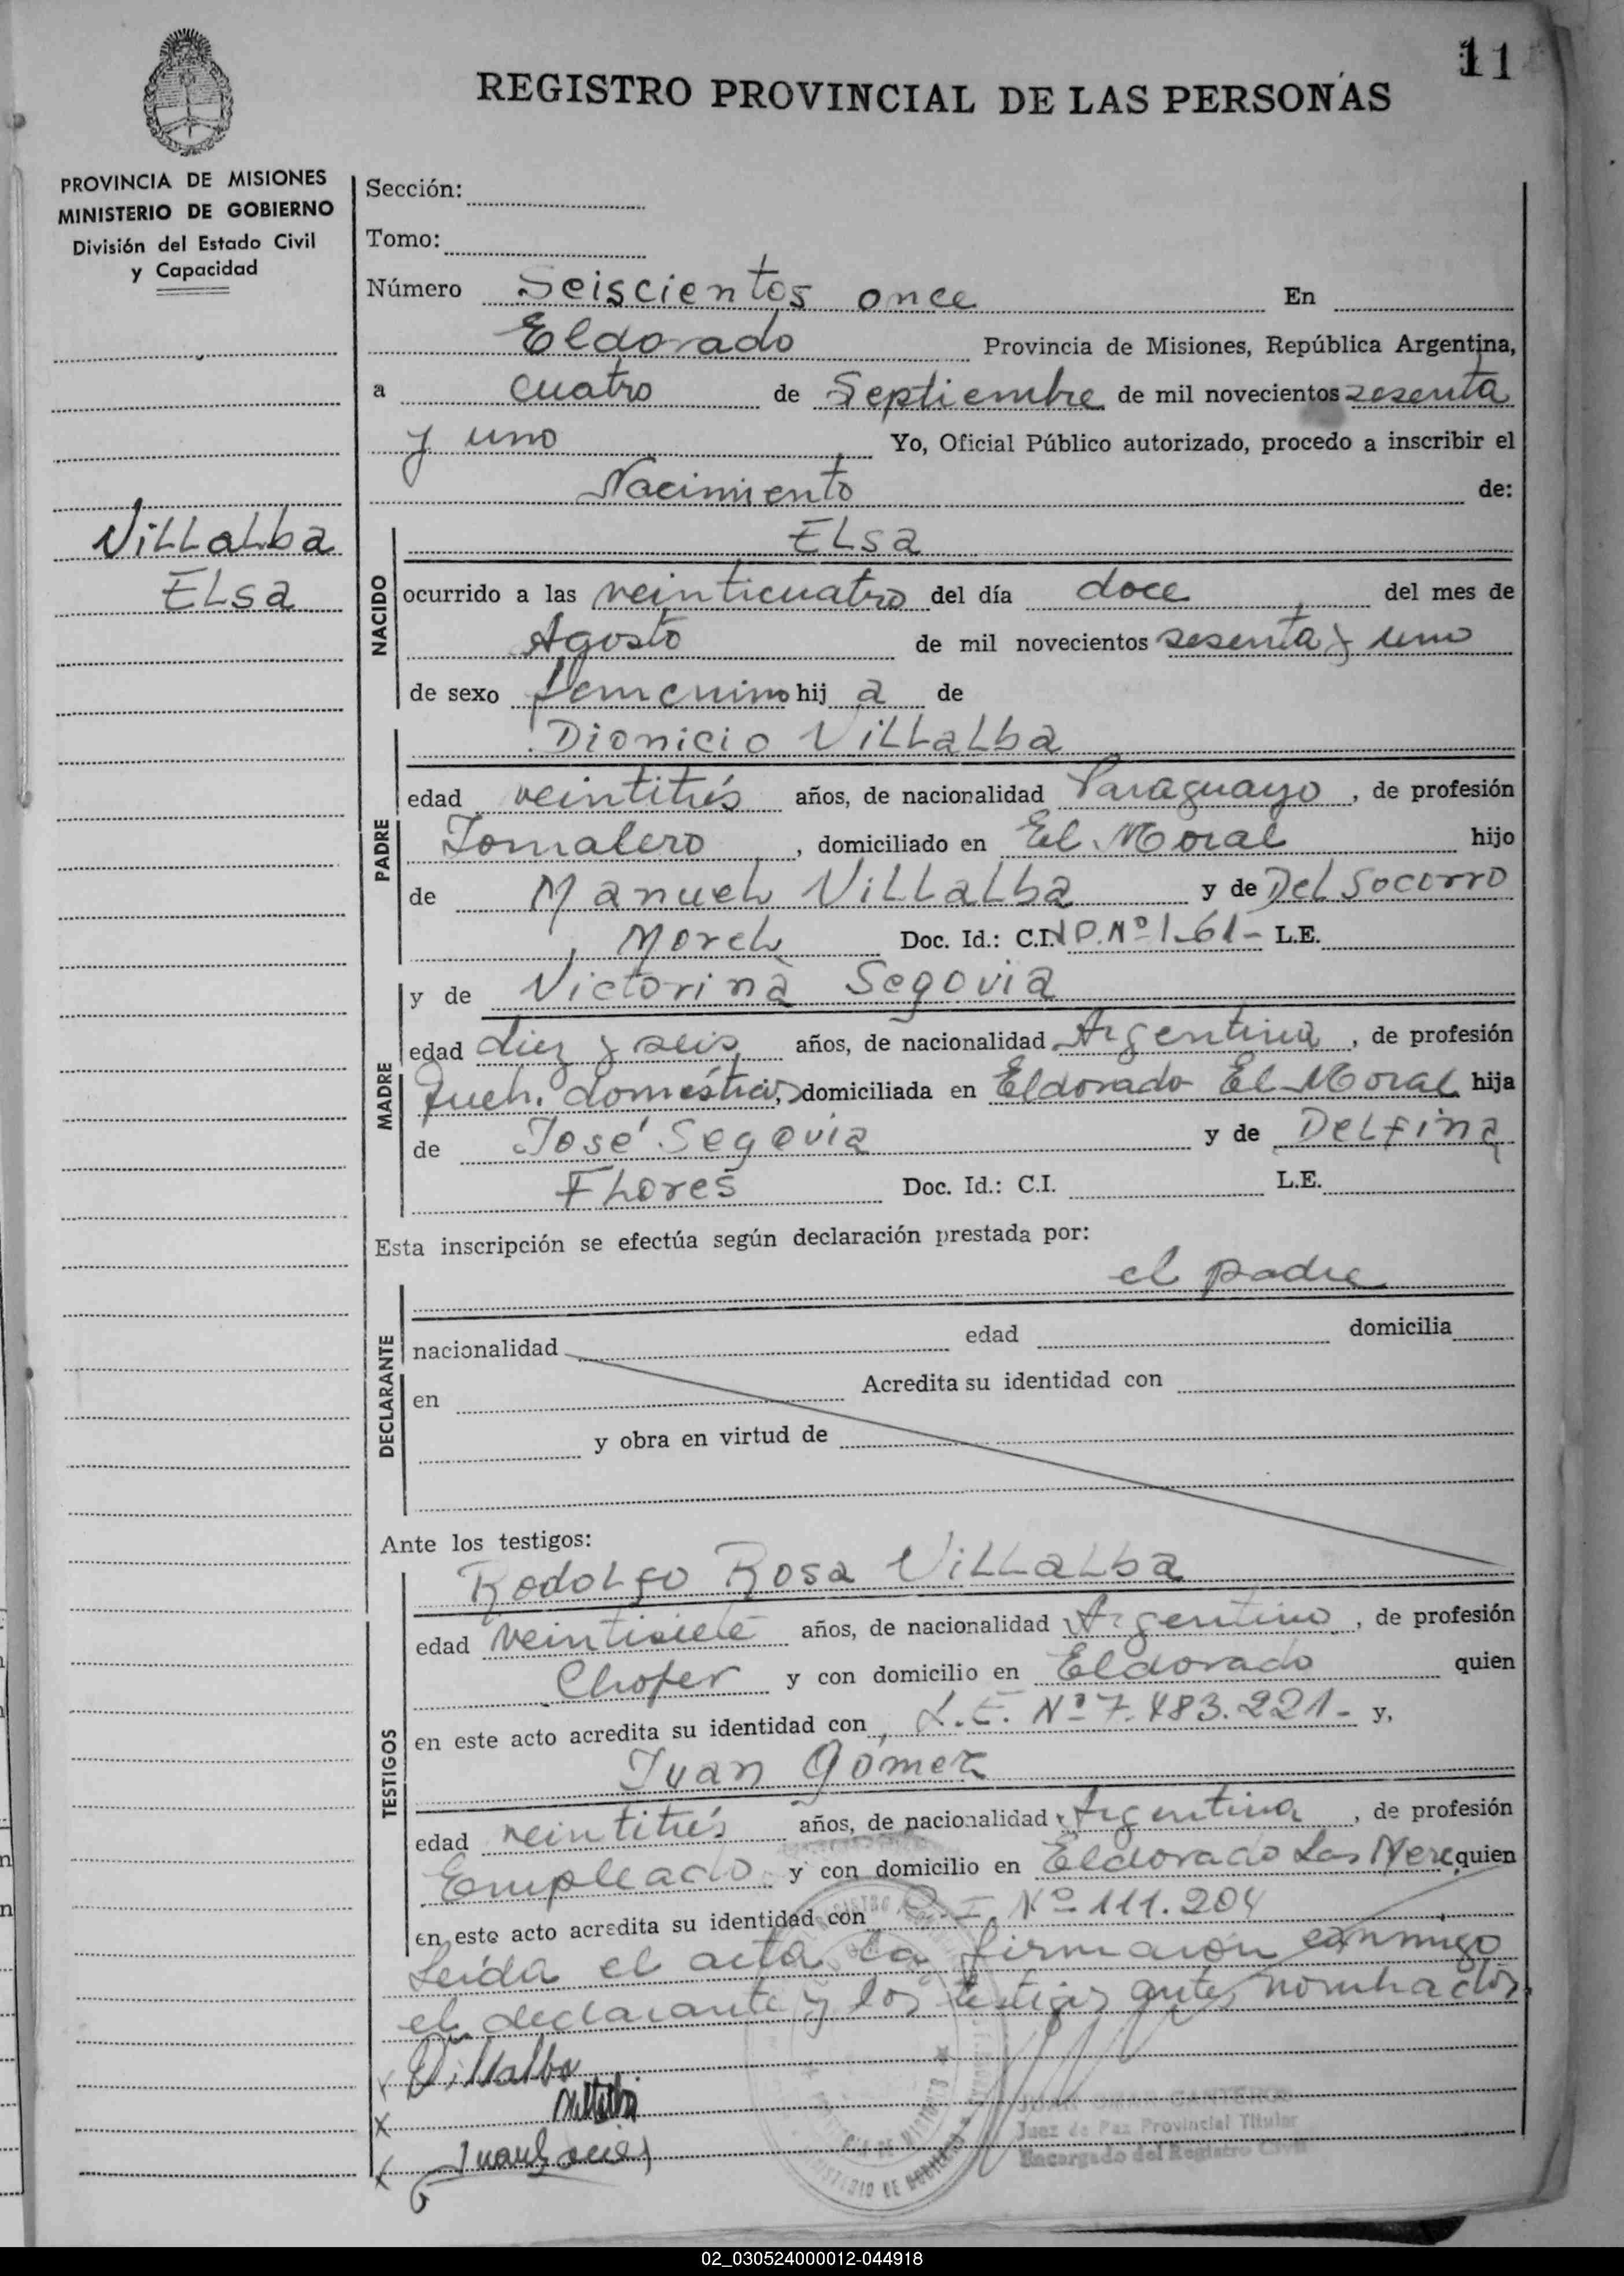 11
REGISTRO PROVINCIAL DE LAS PERSONAS
PROVINCIA DE MISIONES
MINISTERIO DE GOBIERNO
División del Estado Civil
y Capacidad
Villalba
Elsa
Sección:
Tomo:
Número Seiscientos once En
Eldorado Provincia de Misiones, República Argentina,
a cuatro de Septiembre de mil novecientos sesenta
y uno Yo, Oficial Público autorizado, procedo a inscribir el
Nacimiento de:
NACIDO
Elsa
ocurrido a las veinticuatro del día doce del mes de
Agosto de mil novecientos sesenta y uno
de sexo femenino hij a de
PADRE
Dionicio Villalba
edad veintitrés años, de nacionalidad Paraguayo, de profesión
Jornalero, domiciliado en El Moral hijo
de Manuel Villalba y de Del Socorro
Morel Doc. Id.: C.I. P. Nº 1-61- L.E.
MADRE
y de Victorina Segovia
edad diez y seis años, de nacionalidad Argentina, de profesión
Queh. domésticos, domiciliada en Eldorado El Moral hija
de José Segovia y de Delfina
Flores Doc. Id.: C.I. L.E.
Esta inscripción se efectúa según declaración prestada por:
el padre
DECLARANTE
nacionalidad edad domicilia
en Acredita su identidad con
y obra en virtud de
Ante los testigos:
TESTIGOS
Rodolfo Rosa Villalba
edad veintisiete años, de nacionalidad Argentino, de profesión
Chofer y con domicilio en Eldorado quien
en este acto acredita su identidad con L.E. Nº 7.483.221- y,
Juan Gómez
edad veintitrés años, de nacionalidad Argentina, de profesión
Empleado y con domicilio en Eldorado Las Merc quien
en este acto acredita su identidad con C.I. Nº 111.204
Leída el acta la firmaron conmigo
el declarante y los testigos antes nombrados
Villalba
JUAN OMAR CANTEROS
Juez de Paz Provincial Titular
Encargado del Registro Civil
02_030524000012-044918